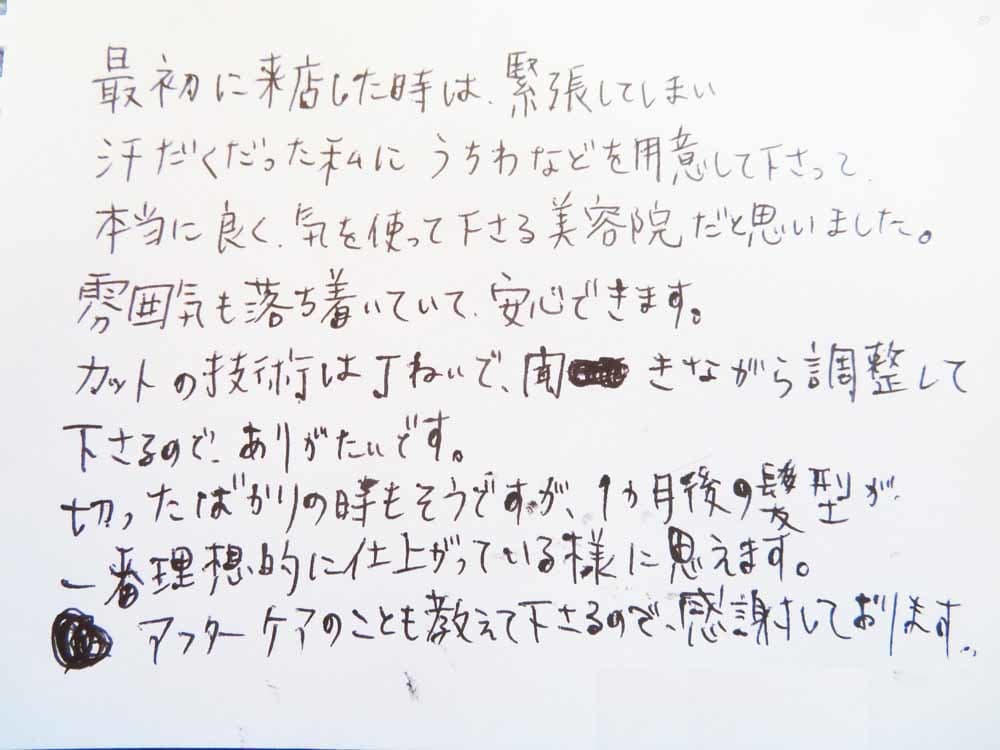 最初に来店した時は、緊張してしまい
汗だくだった私にうちわなどを用意して下さって、
本当に良く、気を使って下さる美容院だと思いました。
雰囲気も落ち着いていて、安心できます。
カットの技術は丁ねいで、聞きながら調整して
下さるので、ありがたいです。
切ったばかりの時もそうですが、1か月後の髪型が
一番理想的に仕上がっている様に思えます。
アフターケアのことも教えて下さるので、感謝しております。